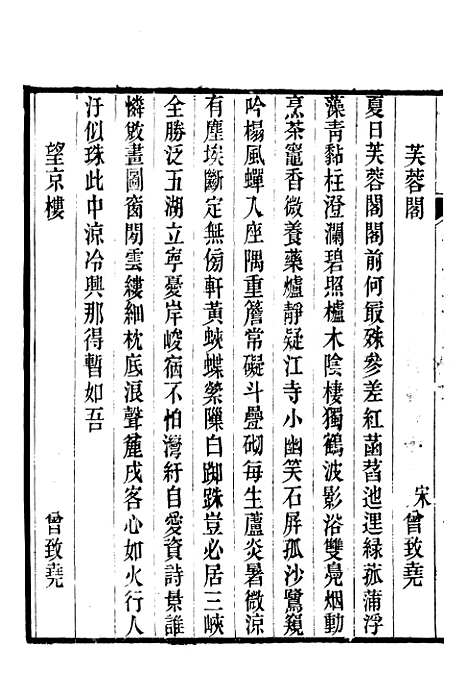 芙蓉閣
宋曾致堯
夏日芙蓉閣閣前何最殊參差紅菡萏池逕緑菰蒲浮
藻青黏柱澄瀾碧照櫨木陰棲獨鶴波影浴雙鳧烟動
烹茶竈香微養藥爐靜疑江寺小幽笑石屏孤沙鷺窺
吟榻風蟬入座隅重簷常礙斗疊砌每生蘆炎暑微涼
有塵埃斷定無傍軒黃蛺蝶縈隟白踟跦豈必居三峽
全勝泛五湖立寧憂岸峻宿不怕灣紆自愛資詩景誰
憐敓畫圖窗閒雲縷細枕底浪聲麄戍客心如火行人
汙似珠此中涼冷興那得暫如吾
望京樓
曾致堯